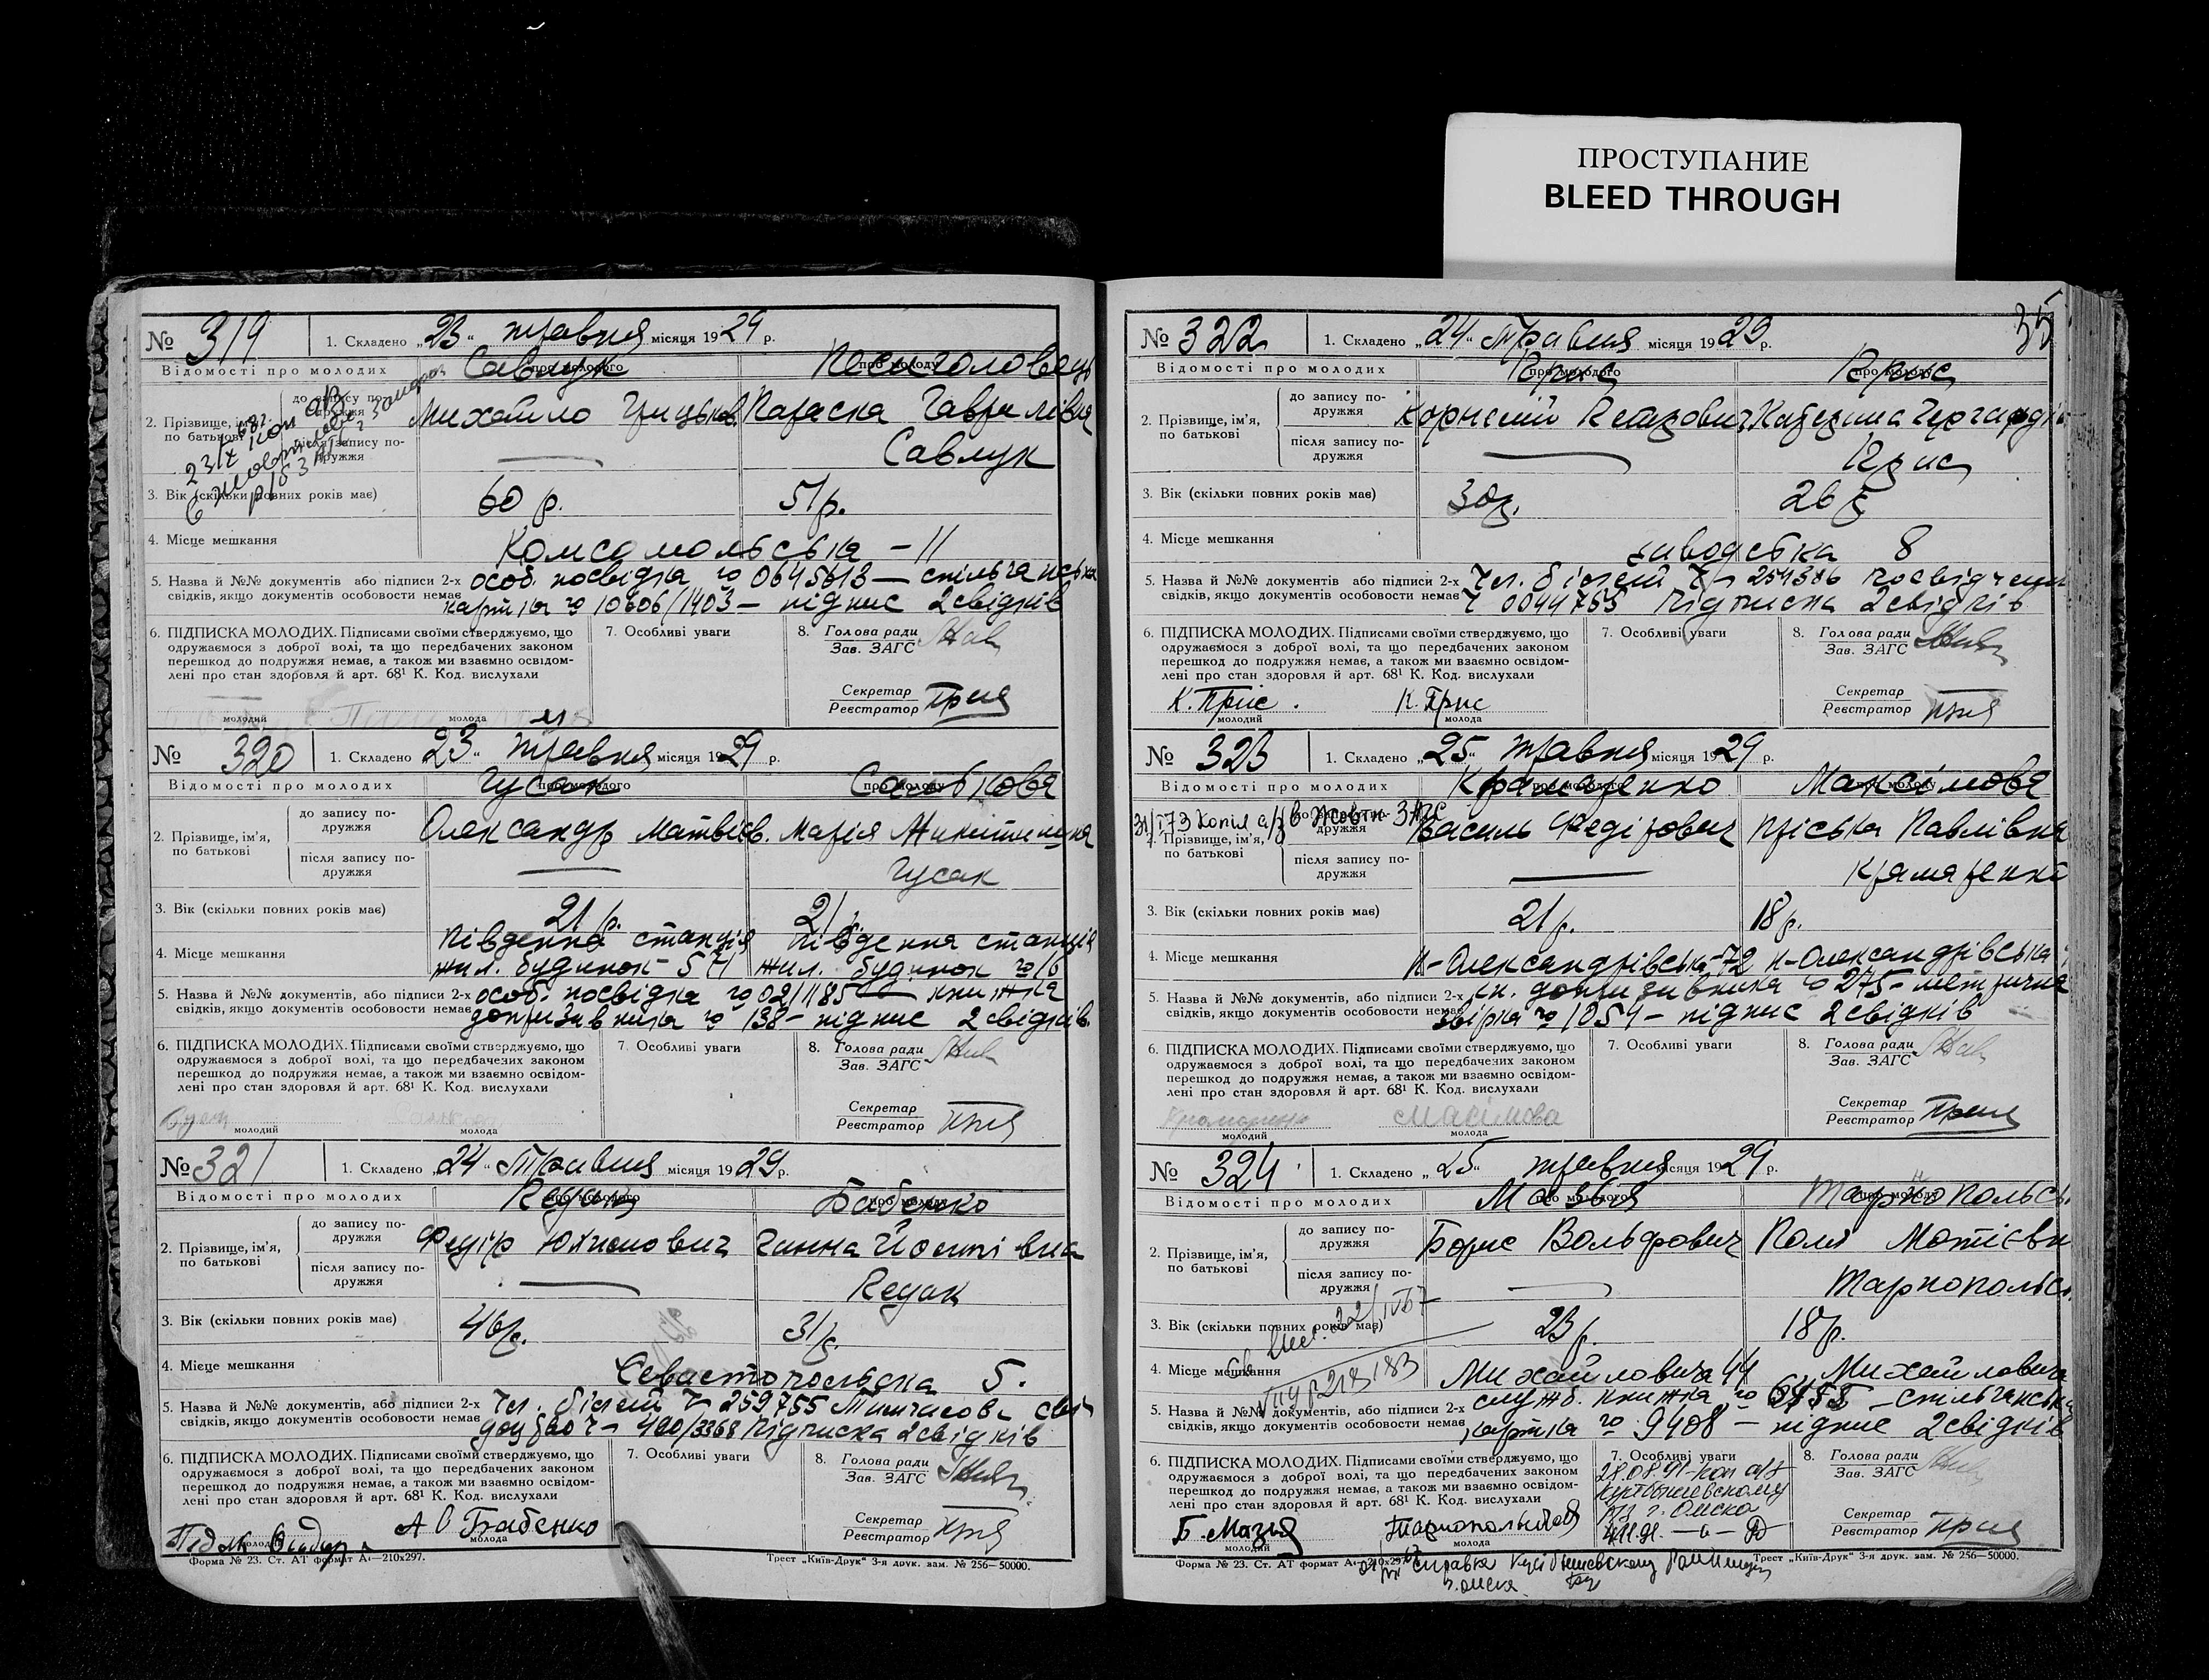 ПРОСТУПАНИЕ
BLEED THROUGH
№ 319 1. Складено „23“ травня місяця 1929 р.
Відомості про молодих про молодого Савлук про молоду
2. Прізвище, ім'я, по батькові
до запису по-дружжя Михайло Грицьков. Параска Гаврилівна
після запису по-дружжя — Савлук
3. Вік (скільки повних років має) 60 р. 51 р.
4. Місце мешкання Комсомольська – 11
5. Назва й №№ документів або підписи 2-х особ. посвідка № 0645613 — спільчанська
свідків, якщо документів особовости немає картка № 10606/1403 – підпис 2 свідків
6. ПІДПИСКА МОЛОДИХ. Підписами своїми стверджуємо, що
одружаємося з доброї волі, та що передбачених законом
перешкод до подружжя немає, а також ми взаємно освідом-
лені про стан здоровля й арт. 68¹ К. Код. вислухали
молодий молода
7. Особливі уваги
8. Голова ради
Зав. ЗАГС
Секретар
Реєстратор
№ 320 1. Складено „23“ травня місяця 1929 р.
Відомості про молодих про молодого Гусак про молоду
2. Прізвище, ім'я, по батькові
до запису по-дружжя Олександр Матвієв. Марія Микитишна
після запису по-дружжя — Гусак
3. Вік (скільки повних років має) 21 р. 21 р.
4. Місце мешкання Південна станція Південна станція
жил. будинок 571 жил. будинок № 16
5. Назва й №№ документів, або підписи 2-х особ. посвідка № 021185 — книжка
свідків, якщо документів особовости немає допризивника № 138 – підпис 2 свідків.
6. ПІДПИСКА МОЛОДИХ. Підписами своїми стверджуємо, що
одружаємося з доброї волі, та що передбачених законом
перешкод до подружжя немає, а також ми взаємно освідом-
лені про стан здоровля й арт. 68¹ К. Код. вислухали
молодий молода
7. Особливі уваги
8. Голова ради
Зав. ЗАГС
Секретар
Реєстратор
№ 321 1. Складено „24“ Травня місяця 1929 р.
Відомості про молодих про молодого про молоду Бабенко
2. Прізвище, ім'я, по батькові
до запису по-дружжя Федір Юхимович Ганна Йосипівна
після запису по-дружжя —
3. Вік (скільки повних років має) 46 р. 31 р.
4. Місце мешкання Севастопольська 5.
5. Назва й №№ документів, або підписи 2-х Чл. білєтй Ч 259755 Тимчасове сві-
свідків, якщо документів особовости немає Ч – 420/3368 Підписка 2 свідків
6. ПІДПИСКА МОЛОДИХ. Підписами своїми стверджуємо, що
одружаємося з доброї волі, та що передбачених законом
перешкод до подружжя немає, а також ми взаємно освідом-
лені про стан здоровля й арт. 68¹ К. Код. вислухали
А О Бабенко
молодий молода
7. Особливі уваги
8. Голова ради
Зав. ЗАГС
Секретар
Реєстратор
Форма № 23. Ст. АТ формат А₄—210x297. Трест „Київ-Друк“ 3-я друк. зам. № 256—50000.
35
№ 322 1. Складено „24“ Травня місяця 1929 р.
Відомості про молодих про молодого Прис про молоду Прис
2. Прізвище, ім'я, по батькові
до запису по-дружжя Корнелій Катерина
після запису по-дружжя — Прис
3. Вік (скільки повних років має) 30 р. 26 р
4. Місце мешкання Заводська 8
5. Назва й №№ документів або підписи 2-х Чл. білєтй Ч 254386 Посвідчення
свідків, якщо документів особовости немає Ч 0044755 Підписка 2 свідків
6. ПІДПИСКА МОЛОДИХ. Підписами своїми стверджуємо, що
одружаємося з доброї волі, та що передбачених законом
перешкод до подружжя немає, а також ми взаємно освідом-
лені про стан здоровля й арт. 68¹ К. Код. вислухали
К. Прис. К. Прис
молодий молода
7. Особливі уваги
8. Голова ради
Зав. ЗАГС
Секретар
Реєстратор
№ 323 1. Складено „25“ травня місяця 1929 р.
Відомості про молодих про молодого Крамаренко про молоду Максімова
2. Прізвище, ім'я, по батькові
до запису по-дружжя Василь Федірович Пріська Павлівна
після запису по-дружжя — Крамаренко
3. Вік (скільки повних років має) 21 р. 18 р.
4. Місце мешкання Н-Олександрівська-72 Н-Олександрівська
5. Назва й №№ документів, або підписи 2-х кн. допризивника № 275 – метрична
свідків, якщо документів особовости немає № 1054 – підпис 2 свідків
6. ПІДПИСКА МОЛОДИХ. Підписами своїми стверджуємо, що
одружаємося з доброї волі, та що передбачених законом
перешкод до подружжя немає, а також ми взаємно освідом-
лені про стан здоровля й арт. 68¹ К. Код. вислухали
Масімова
молодий молода
7. Особливі уваги
8. Голова ради
Зав. ЗАГС
Секретар
Реєстратор
№ 324 1. Складено „25“ травня місяця 1929 р.
Відомості про молодих про молодого Мазья про молоду Тарнопольсь
2. Прізвище, ім'я, по батькові
до запису по-дружжя Борис Вольфович Поля Мотієвн
після запису по-дружжя — Тарнопольс
3. Вік (скільки повних років має) 23 р. 18 р.
4. Місце мешкання Михайловича 44 Михайловича
5. Назва й №№ документів, або підписи 2-х служб. книжка № – спільчанська
свідків, якщо документів особовости немає картка № 9408 – підпис 2 свідків
6. ПІДПИСКА МОЛОДИХ. Підписами своїми стверджуємо, що
одружаємося з доброї волі, та що передбачених законом
перешкод до подружжя немає, а також ми взаємно освідом-
лені про стан здоровля й арт. 68¹ К. Код. вислухали
Б. Мазья
молодий молода
7. Особливі уваги
28.08.91 – коп а/з
Куйбышевскому
г. Омска
8. Голова ради
Зав. ЗАГС
Секретар
Реєстратор
Форма № 23. Ст. АТ формат А₄—210x297. Трест „Київ-Друк“ 3-я друк. зам. № 256—50000.
справка Куйбышевскому
г. Омска